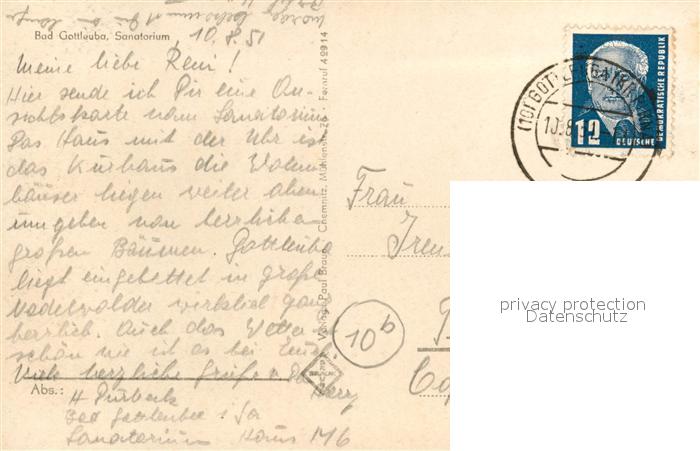 Bad Gottleuba, Sanatorium
10.8.51
Meine liebe Reni!
Hier sende ich Dir eine An-
sichtskarte vom Sanatorium
Das Haus mit der Uhr ist
das Kurhaus die Wohn-
häuser liegen weiter oben
umgeben von herrlichen
großen Bäumen. Gottleuba
liegt eingebettet in große
Nadelwälder wirklich ganz
herrlich. Auch das Wetter
schön wie ist es bei Euch
Viele herzliche Grüße
Abs.:
H
Bad Gottleuba i/Sa
Sanatorium Haus M6
Verlag Paul Braun, Chemnitz, Mühlenstr. Fernruf 42914
Frau
10b
12
DEUTSCHE
DEMOKRATISCHE REPUBLIK
(10) GOTTLEUBA
privacy protection
Datenschutz